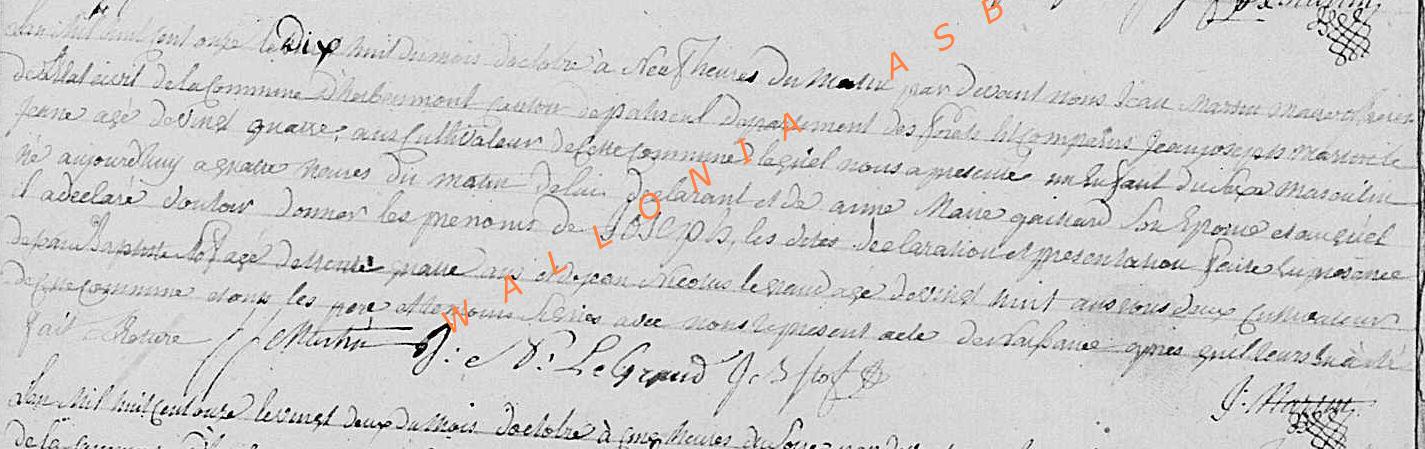 J. Martin
L'an Mil huit cent onze le Dix huit du mois d'octobre à Neuf heures du matin par devant nous Jean Martin maire officier
de l'Etat civil de la Commune d'herbeumont Canton de paliseul Departement des forets est Comparus Jean joseph Martin le
jeune agé de vingt quatre ans Cultivateur de cette commune lequel nous a presenté un Enfant du sexe masculin
né aujourd'huy a quatre heures du matin de lui declarant et de anne Marie gaillard son Epouse et auquel
il a declaré vouloir donner les prenoms de Joseph, les dites declaration et presentation faite En presence
de jean Baptiste Stof agé de trente quatre ans et de jean Nicolas le grand agé de vingt huit ans tous deux Cultivateur
de cette Commune et ont les pere et temoins signés avec nous le present acte de naissance apres qu'il leurs En à été
fait lecture J J Martin J: N: LeGrand J B Stof
J. Martin
L'an Mil huit Cent onze le vingt deux du mois d'octobre à cinq heures du soir par
de la Commune
WALLONIA ASB